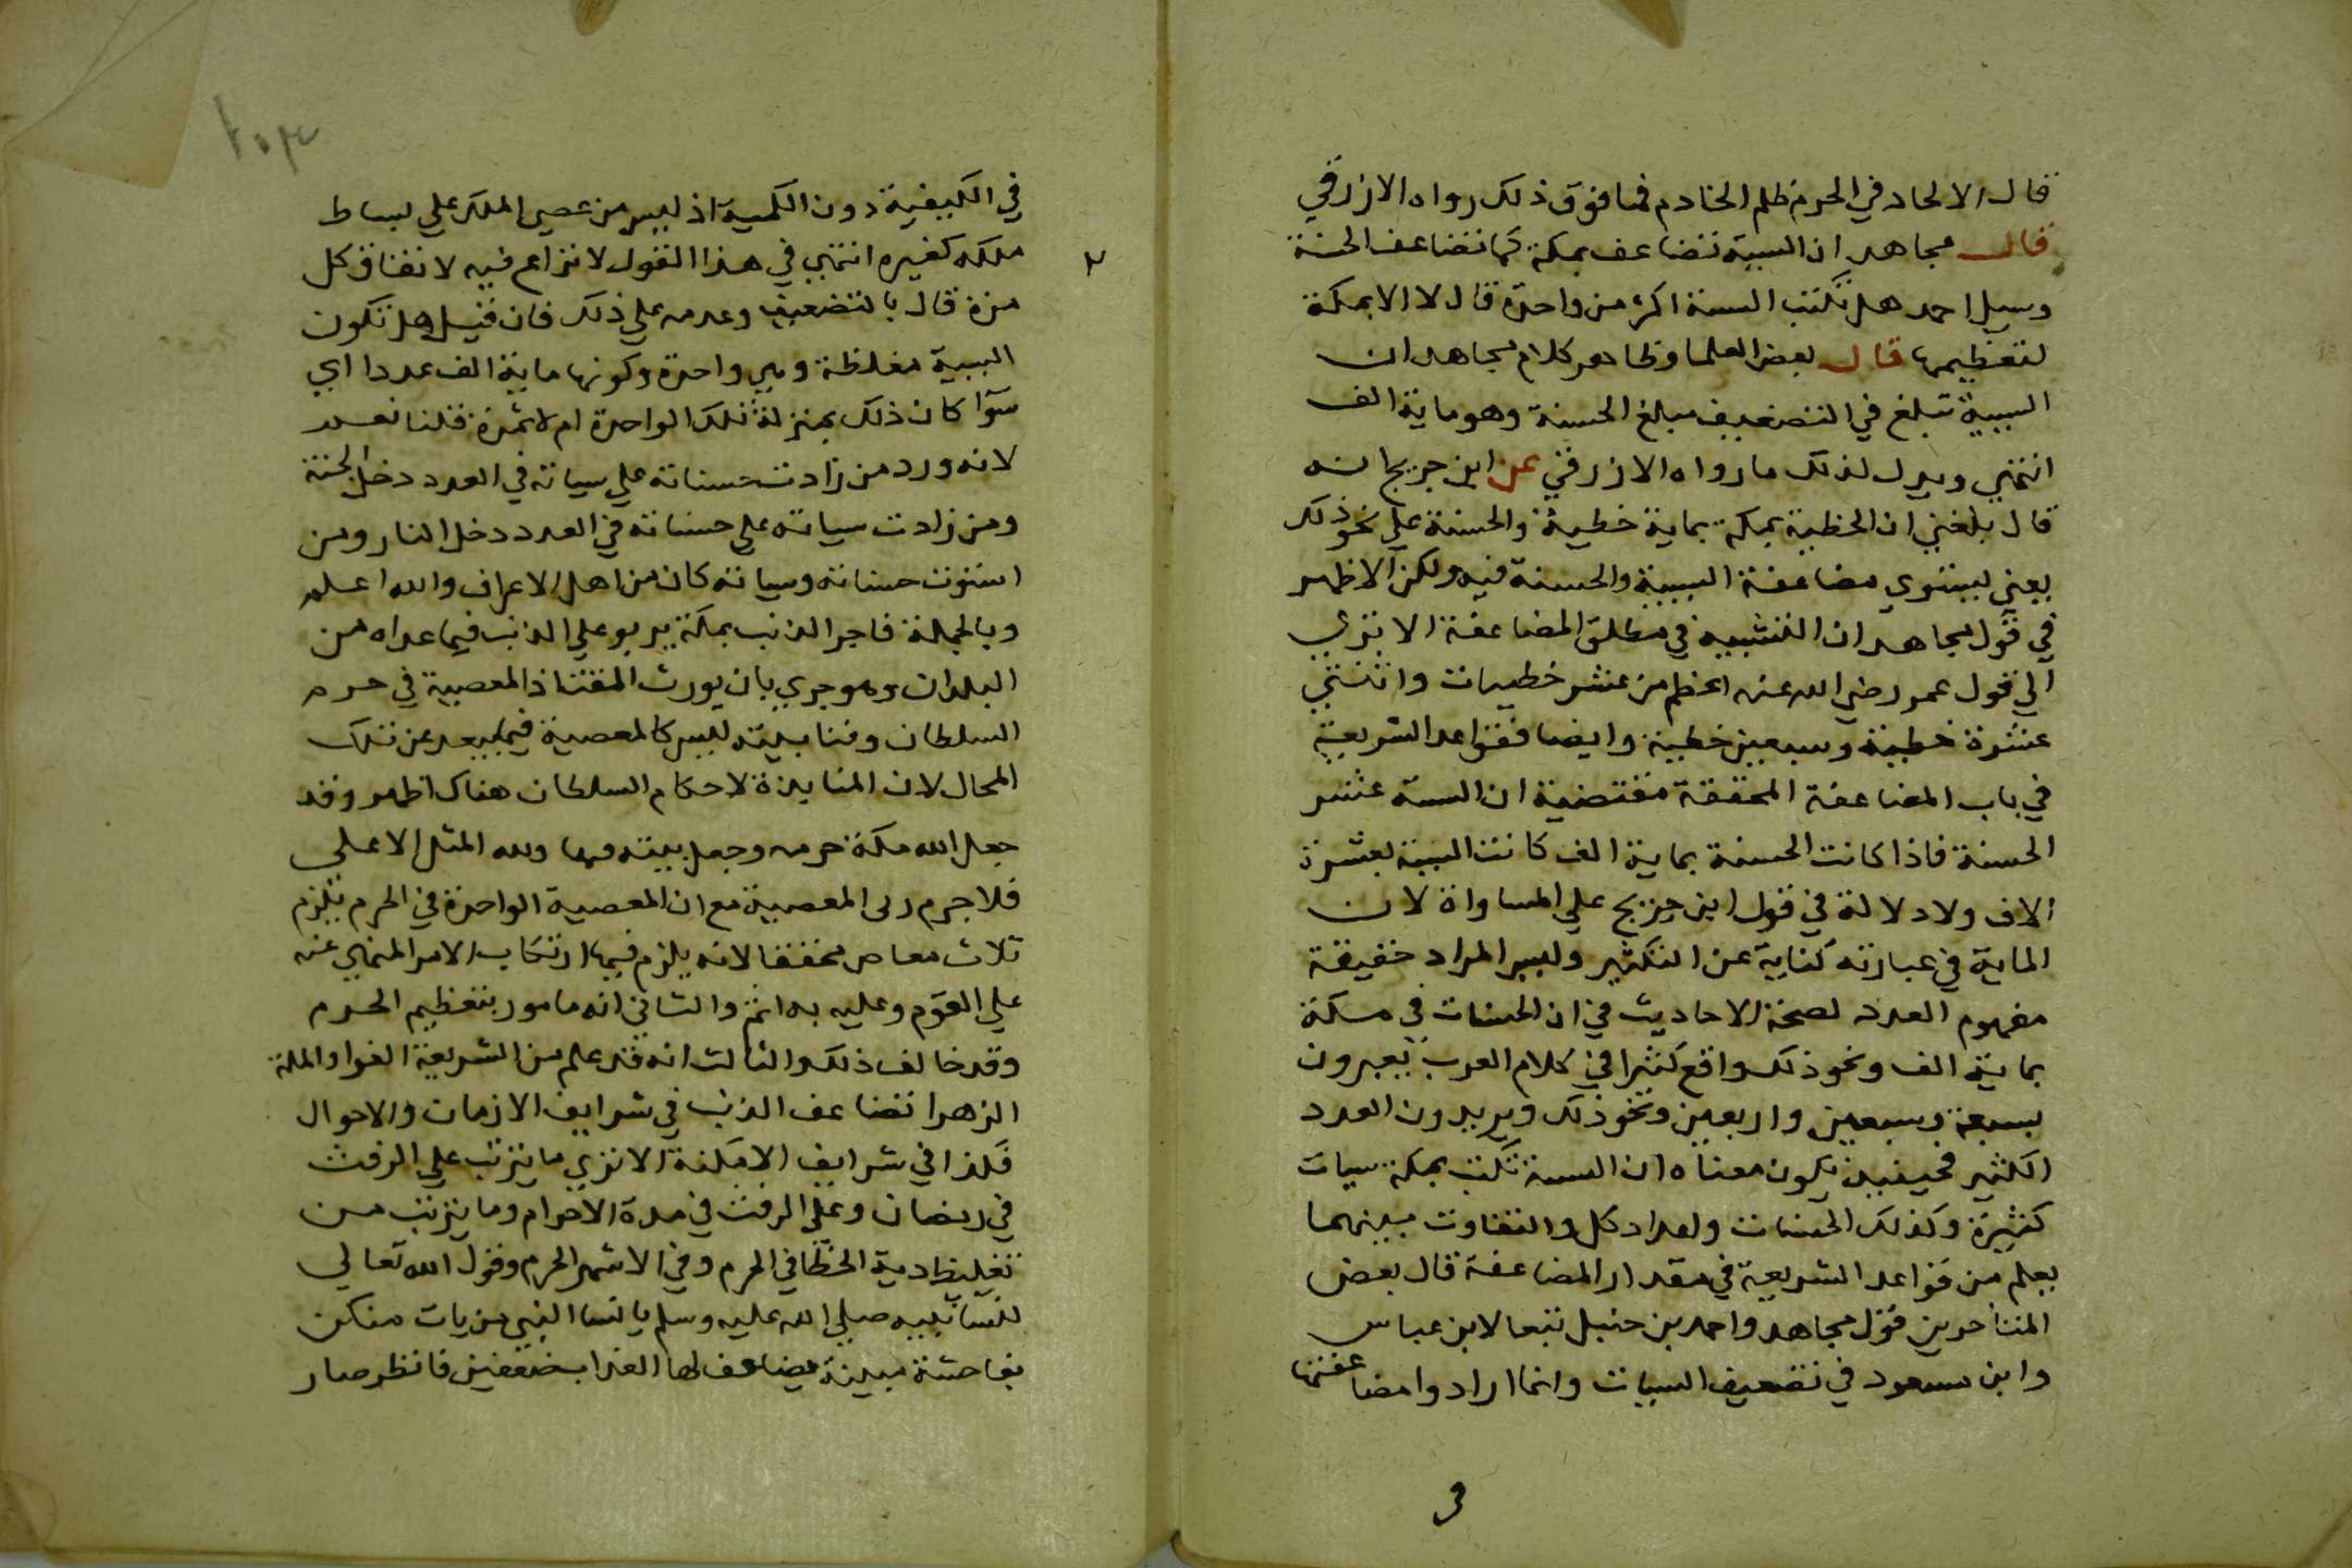 قال الالحاد في الحرم ظلم الخادم فما فوق ذلك رواه الازرقي
قال مجاهد ان السيية تضاعف بمكة كما تضاعف الحسنة
وسيل احمد هل تكتب السيية اكثر من واحدة قال لا الا بمكة
لتعظيمها قال بعض العلما وظاهر كلام مجاهد ان
السيية تبلغ في التضعيف مبلغ الحسنة وهو ماية الف
انتهي ويدل لذلك ما رواه الازرقي عن ابن جريج انه
قال بلغني ان الخطية بمكة بماية خطية والحسنة علي نحو ذلك
يعني ليستوي مضاعفة السيية والحسنة فيه ولكن الاظهر
في قول مجاهد ان التشبيه في مطلق المضاعفة الا تري
الي قول عمر رضي الله عنه اعظم من عشر خطييات واثنتي
عشرة خطية وسبعين خطية وايضا فقواعد الشريعة
في باب المضاعفة المحققة مقتضية ان السية عشر
الحسنة فاذا كانت الحسنة بماية الف كانت السية بعشرة
الاف ولا دلالة في قول ابن جريج علي المساواة لان
الماية في عبارته كناية عن التكثير وليس المراد حقيقة
مفهوم العدد لصحة الاحاديث في ان الحسنات في مكة
بماية الف ونحو ذلك واقع كثيرا في كلام العرب يعبرون
بسبعة وسبعين واربعين ونحو ذلك ويريدون العدد
الكثير فحينيذ يكون معناه ان السية تكتب بمكة سيات
كثيرة وكذلك الحسنات واعداد كل والتفاوت بينهما
يعلم من قواعد الشريعة في مقدار المضاعفة قال بعض
المتاخرين قول مجاهد واحمد بن حنبل تبعا لابن عباس
وابن مسعود في تضعيف السييات وانما ارادوا مضاعفتها
في
في الكيفية دون الكمية اذ ليس من عصي الملك علي بساط
ملكه كغيره انتهي في هذا القول لا نزاع فيه لاتفاق كل
من قال بالتضعيف وعدمه علي ذلك فان قيل هل تكون
السيية مغلظة وهي واحدة وكونها ماية الف عددا اي
سوآ كان ذلك بمنزلة تلك الواحدة ام لا ثمرة قلنا نعم
لانه ورد من زادت حسناته علي سياته في العدد دخل الجنة
ومن زادت سياته علي حسناته في العدد دخل النار ومن
استوت حسناته وسياته كان من اهل الاعراف والله اعلم
وبالجملة فاجر الذنب بمكة يربو علي الذنب فيما عداه من
البلدان وهو جري بان يورث المقت اذ المعصية في حرم
السلطان وفنا بيته ليس كالمعصية فيما يبعد عن تلك
المحال لان المنابذة لاحكام السلطان هناك اظهر وقد
جعل الله مكة حرمه وجعل بيته فيها ولله المثل الاعلي
فلا جرم المعصية مع ان المعصية الواحدة في الحرم يلزم
ثلاث معاص محققا لانه يلزم فيها ارتكاب الامر المنهي عنه
علي العموم وعليه به اثم والثاني انه مامور بتعظيم الحرم
وقد خالف ذلك والثالث انه قد علم من الشريعة الغرا والملة
الزهرا تضاعف الذنب في شرايف الازمان والاحوال
فكذا في شرايف الامكنة الا تري ما يترتب علي الرفث
في رمضان وعلي الرفث في مدة الاحرام وما يترتب من
تغليظ دية الخطا في الحرم وفي الاشهر الحرم وقول الله تعالي
لنسا نبيه صلي الله عليه وسلم يا نسا النبي من يات منكن
بفاحشة مبينة يضاعف لها العذاب ضعفين فانظر صار